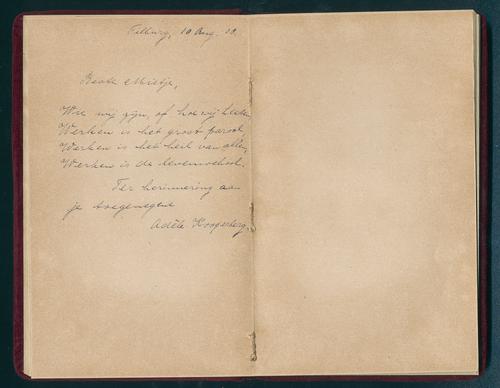 Tilburg, 10 Aug.
Beste Mietje,
Wie wij zijn, of hoe wij heeten
Werken is het groot parool,
Werken is het heil van allen,
Werken is de levensschool.
Ter herinnering aan
je toegenegen
Adèle Hoogenberg.